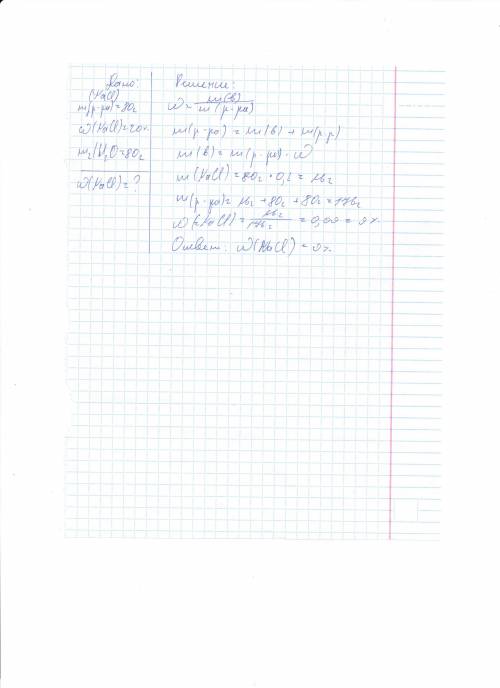 Дано:
(NaCl)
m(р-ра)=80г
ω(NaCl)=20%
m₂(H₂O)=80г
ω(NaCl)=?
Решение:
ω=m(в)/m(р-ра)
m(р-ра)=m(в)+m(р-р)
m(в)=m(р-ра)·ω
m(NaCl)=80г·0,2=16г
m(р-ра)=16г+80г+80г=176г
ω₂(NaCl)=16г/176г=0,09=9%
Ответ: ω(NaCl)=9%